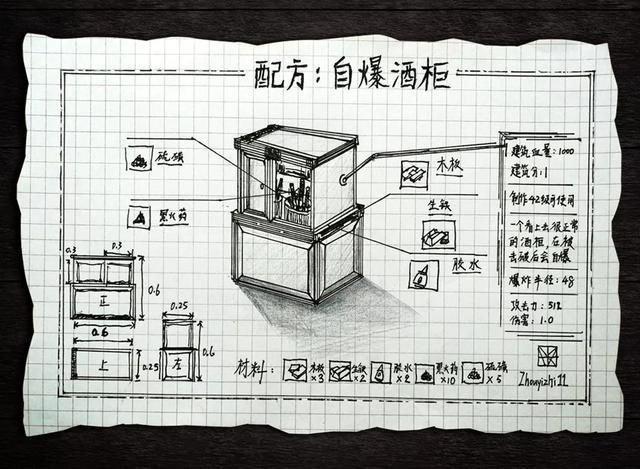 配方:自爆酒柜
硫磺
黑火药
木板
生铁
胶水
建筑血量:1000
建筑分:1
制作42级可使用
一个看上去很正常
的酒柜,在被
击破后会自爆
爆炸半径:48
攻击力:512
伤害:1.0
0.3
0.3
0.6
正
0.6
上
0.25
0.25
0.6
左
材料:
木板
×3
生铁
×2
胶水
×2
黑火药
×10
硫磺
×5
Zhouyizhi11